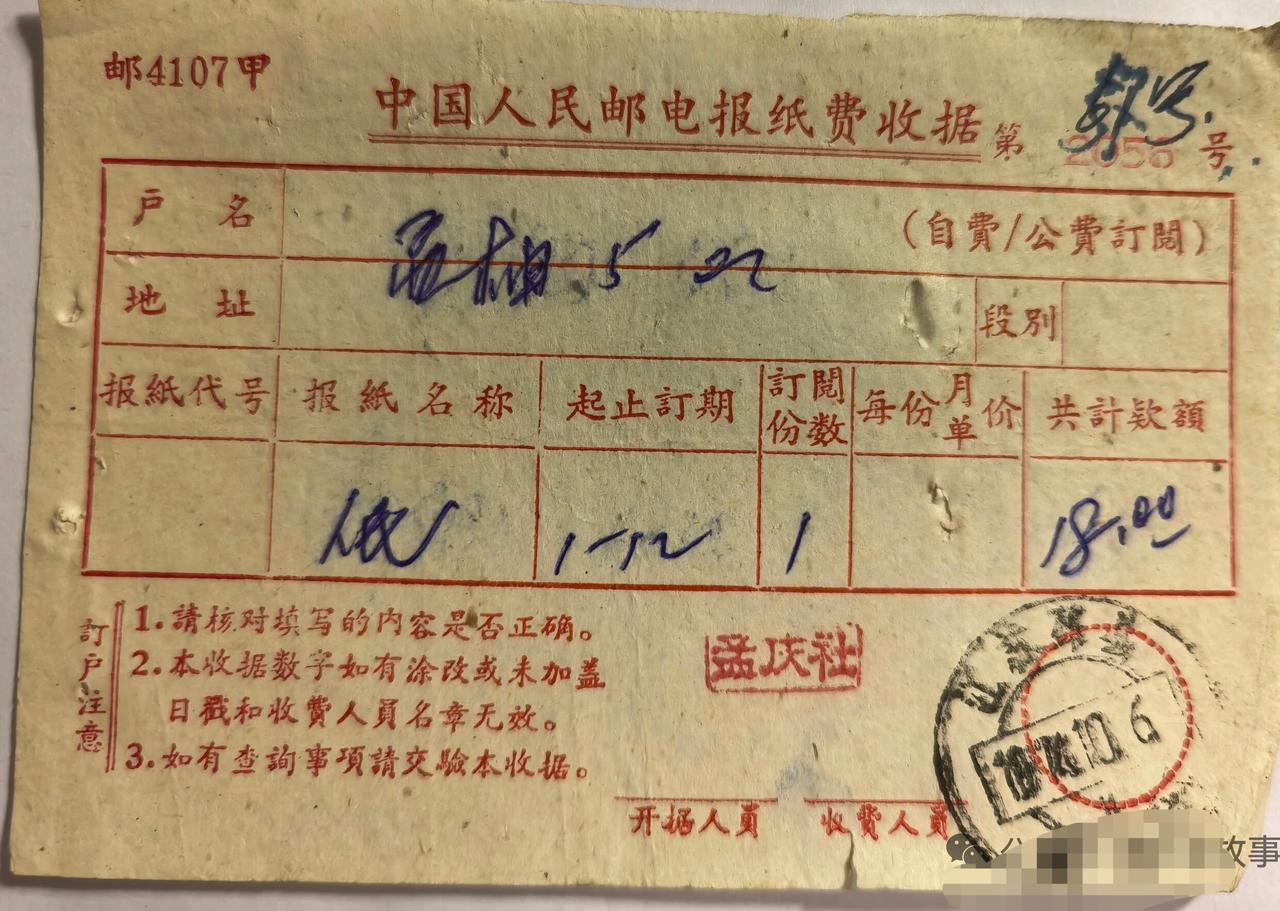 邮4107甲
中国人民邮电报纸费收据
第 2058 号
户 名
(自费/公费訂閱)
地 址
段別
报紙代号 报紙名称 起止訂期 訂閱份数 每份月单价 共計欵額
1-12 1 18.00
訂户注意
1.請核对填写的内容是否正确。
2.本收据数字如有涂改或未加盖
日戳和收费人員名章无效。
3.如有查詢事項請交驗本收据。
孟庆社
10 6
开据人員 收費人員
故事